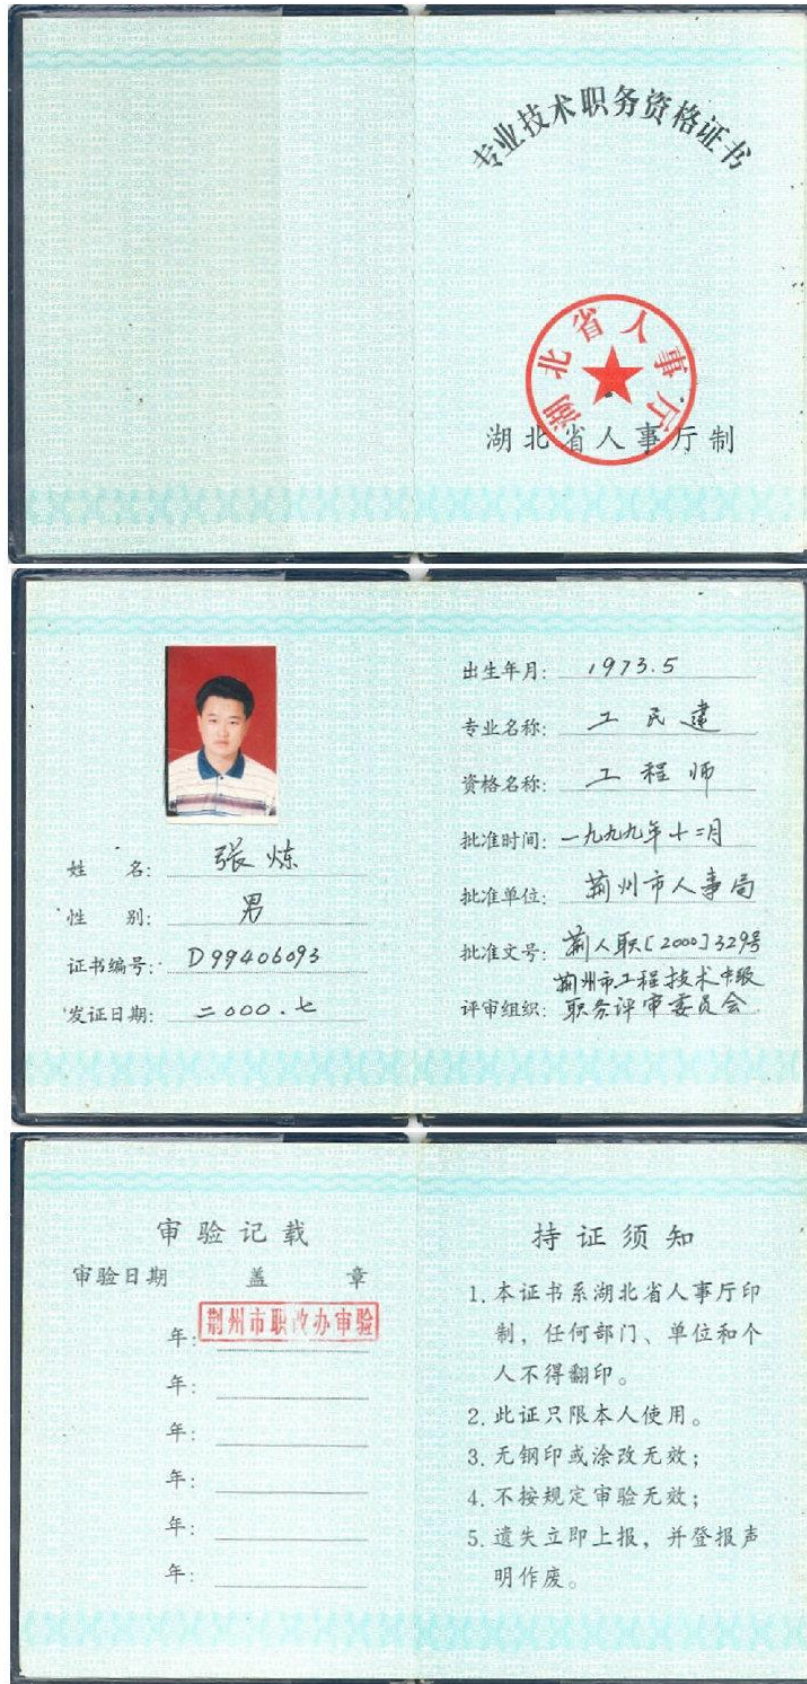 专业技术职务资格证书
湖北省人事厅
湖北省人事厅制
姓 名: 张炼
性 别: 男
证书编号: D99406093
发证日期: 二000.七
出生年月: 1973.5
专业名称: 工民建
资格名称: 工程师
批准时间: 一九九九年十二月
批准单位: 荆州市人事局
批准文号: 荆人职[2000]329号
荆州市工程技术中级
评审组织: 职务评审委员会
审验记载
审验日期 盖 章
年: 荆州市职改办审验
年:
年:
年:
年:
年:
持证须知
1. 本证书系湖北省人事厅印
制，任何部门、单位和个
人不得翻印。
2. 此证只限本人使用。
3. 无钢印或涂改无效；
4. 不按规定审验无效；
5. 遗失立即上报，并登报声
明作废。